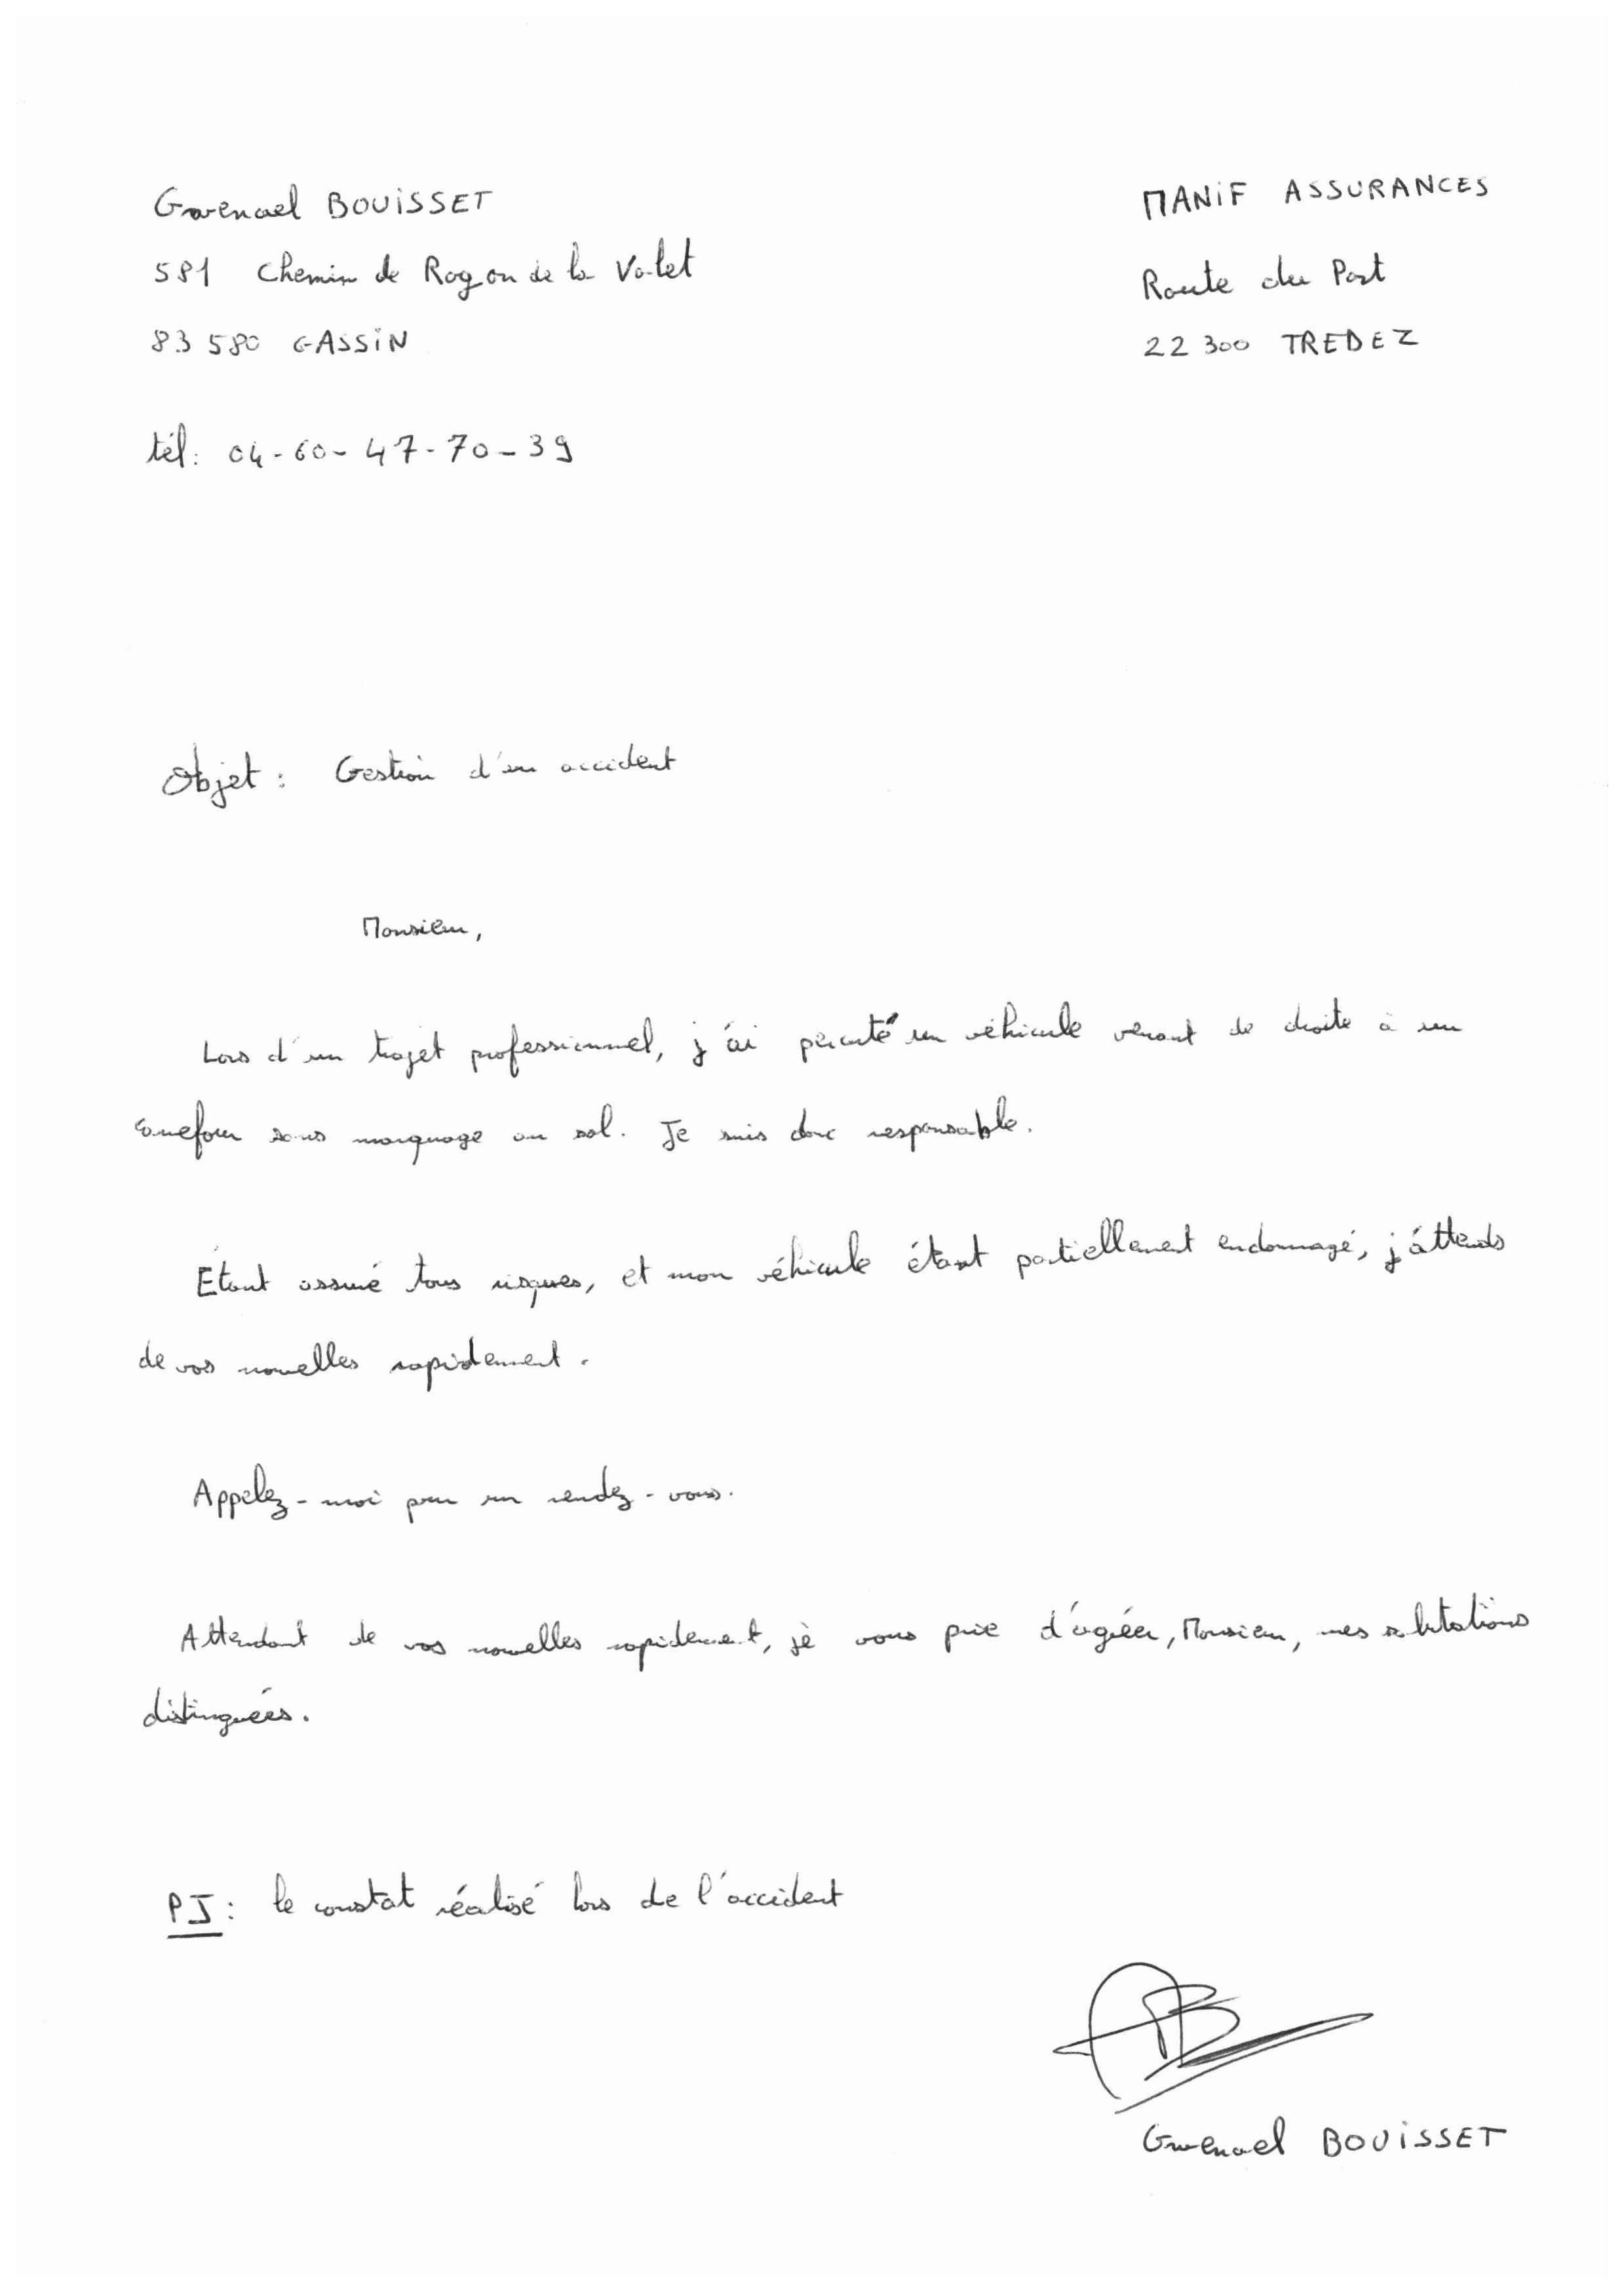 Gwenael BOUiSSET
581 Chemin de Rogon de la Valet
83 580 GASSiN
tél: 04-60-47-70-39
MANiF ASSURANCES
Route du Port
22 300 TREDEZ
Objet : Gestion d'un accident
Monsieur,
Lors d'un trajet professionnel, j'ai percuté un véhicule venant de droite à un
carrefour sans marquage au sol. Je suis donc responsable.
Etant assuré tous risques, et mon véhicule étant partiellement endommagé, j'attends
de vos nouvelles rapidement.
Appelez-moi pour un rendez-vous.
Attendant de vos nouvelles rapidement, je vous prie d'agréer, Monsieur, mes salutations
distinguées.
PJ : le constat réalisé lors de l'accident
Gwenael BOUiSSET